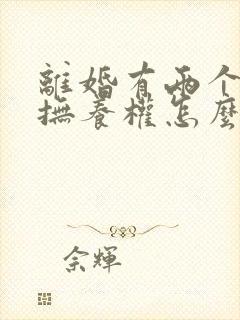 離婚有兩个
撫養權怎麼
余輝